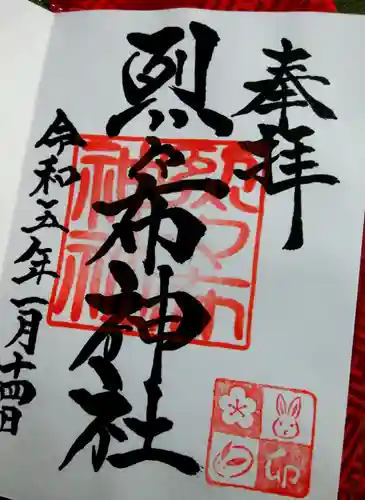 奉拝
烈々布神社
令和五年一月十四日
烈々布
神社
卯